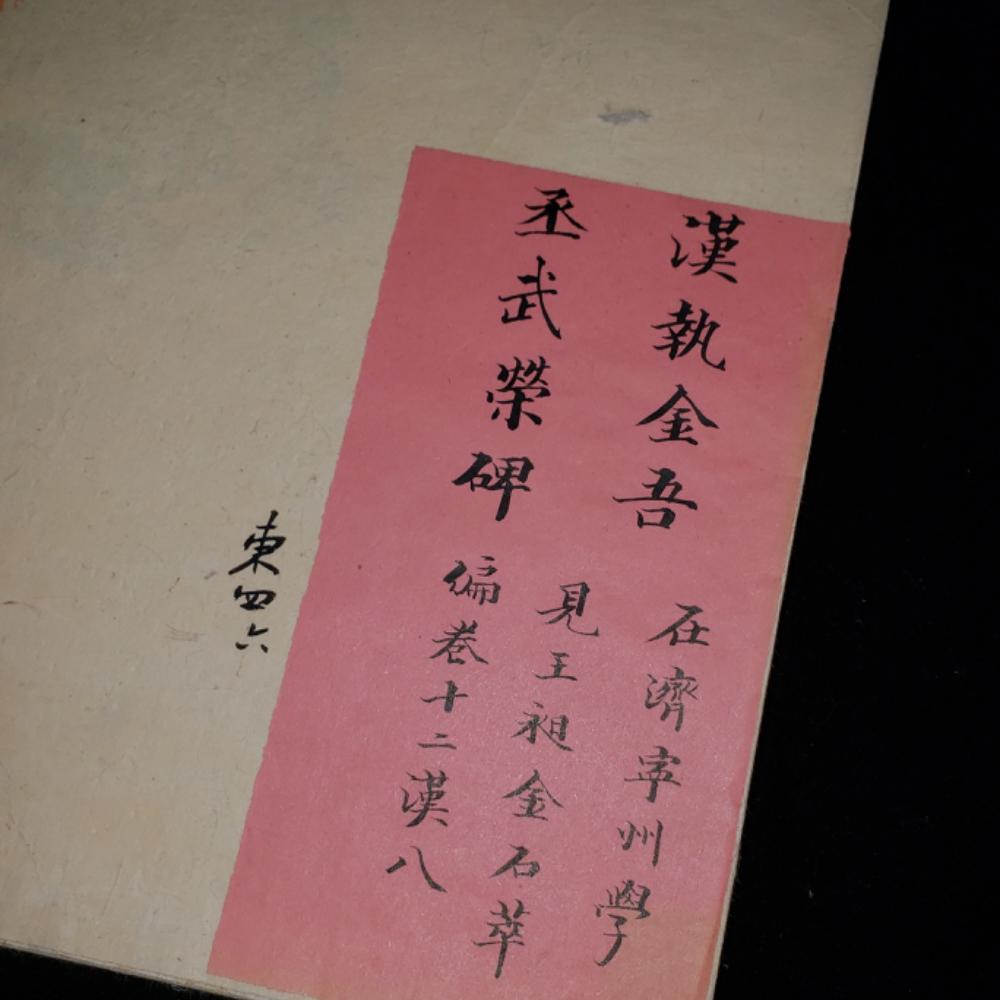 漢執金吾
丞武榮碑
在濟寧州學
見王昶金石萃
偏卷十二漢八
東四六